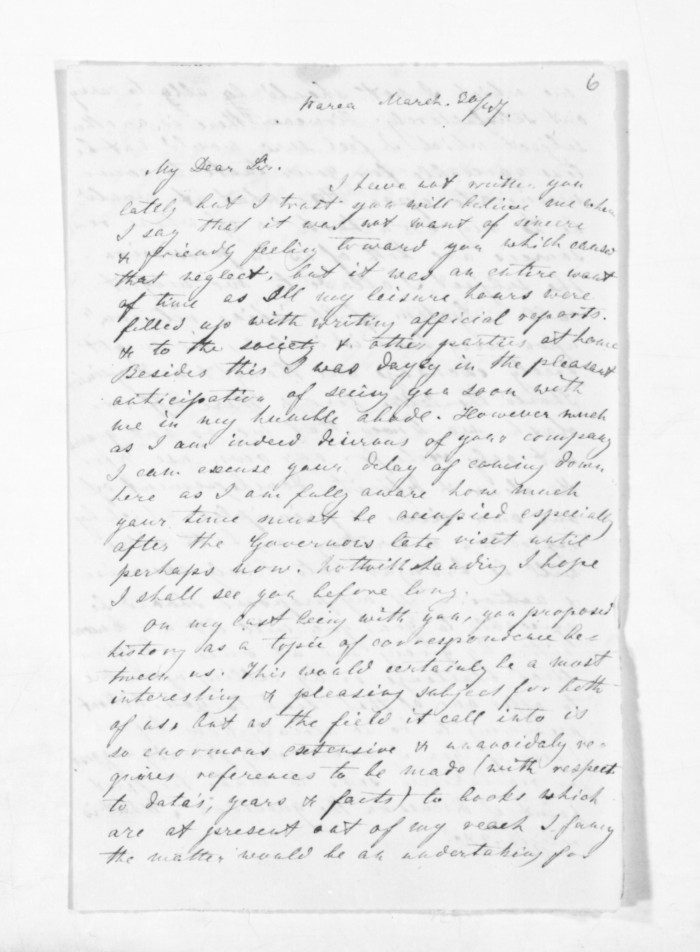 6
Warea March. 20/47.
My Dear Sir.
I have not written you
lately but I trust you will believe me when
I say that it was not want of sincere
& friendly feeling toward you which caused
that neglect, but it was an entire want
of time as all my leisure hours were
filled up with writing official reports.
& to the society & other parties at home
Besides this I was dayly in the pleasant
anticipation of seeing you soon with
me in my humble abode. However much
as I am indeed disirous of your company
I can excuse your delay of coming down
here as I am fully aware how much
your time must be occupied especially
after the Governors late visit until
perhaps now. Notwithstanding I hope
I shall see you before long.
On my last being with you, you proposed
history as a topic of correspondence be-
tween us. This would certainly be a most
interesting & pleasing subject for both
of us, but as the field it call into is
so enormous extensive & unavoidaly re-
quires references to be made (with respect
to data's, years & facts) to books which
are at present out of my reach I fancy
the matter would be an undertaking for